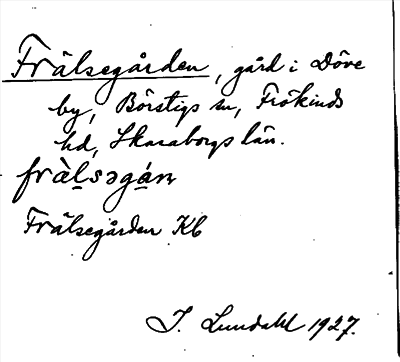 Frälsegården, gård i Döve
by, Börstigs sn, Frökinds
hd, Skaraborgs län.
frὰlsəgán
Frälsegården Kb
I. Lundahl 1927.